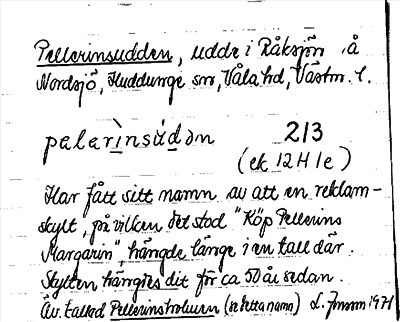 Pellerinsudden, udde i Råksjön å
Nordsjö, Huddunge sn, Våla hd, Västm. l.
pelerìnsúdən 213
(ek 12H1e)
Har fått sitt namn av att en reklam-
skylt, på vilken det stod "Köp Pellerins
Margarin", hängde länge i en tall där.
Skylten hängdes dit för ca 50 år sedan.
Äv. kallad Pellerinstrolluen (se detta namn) L. Jonsson 1971